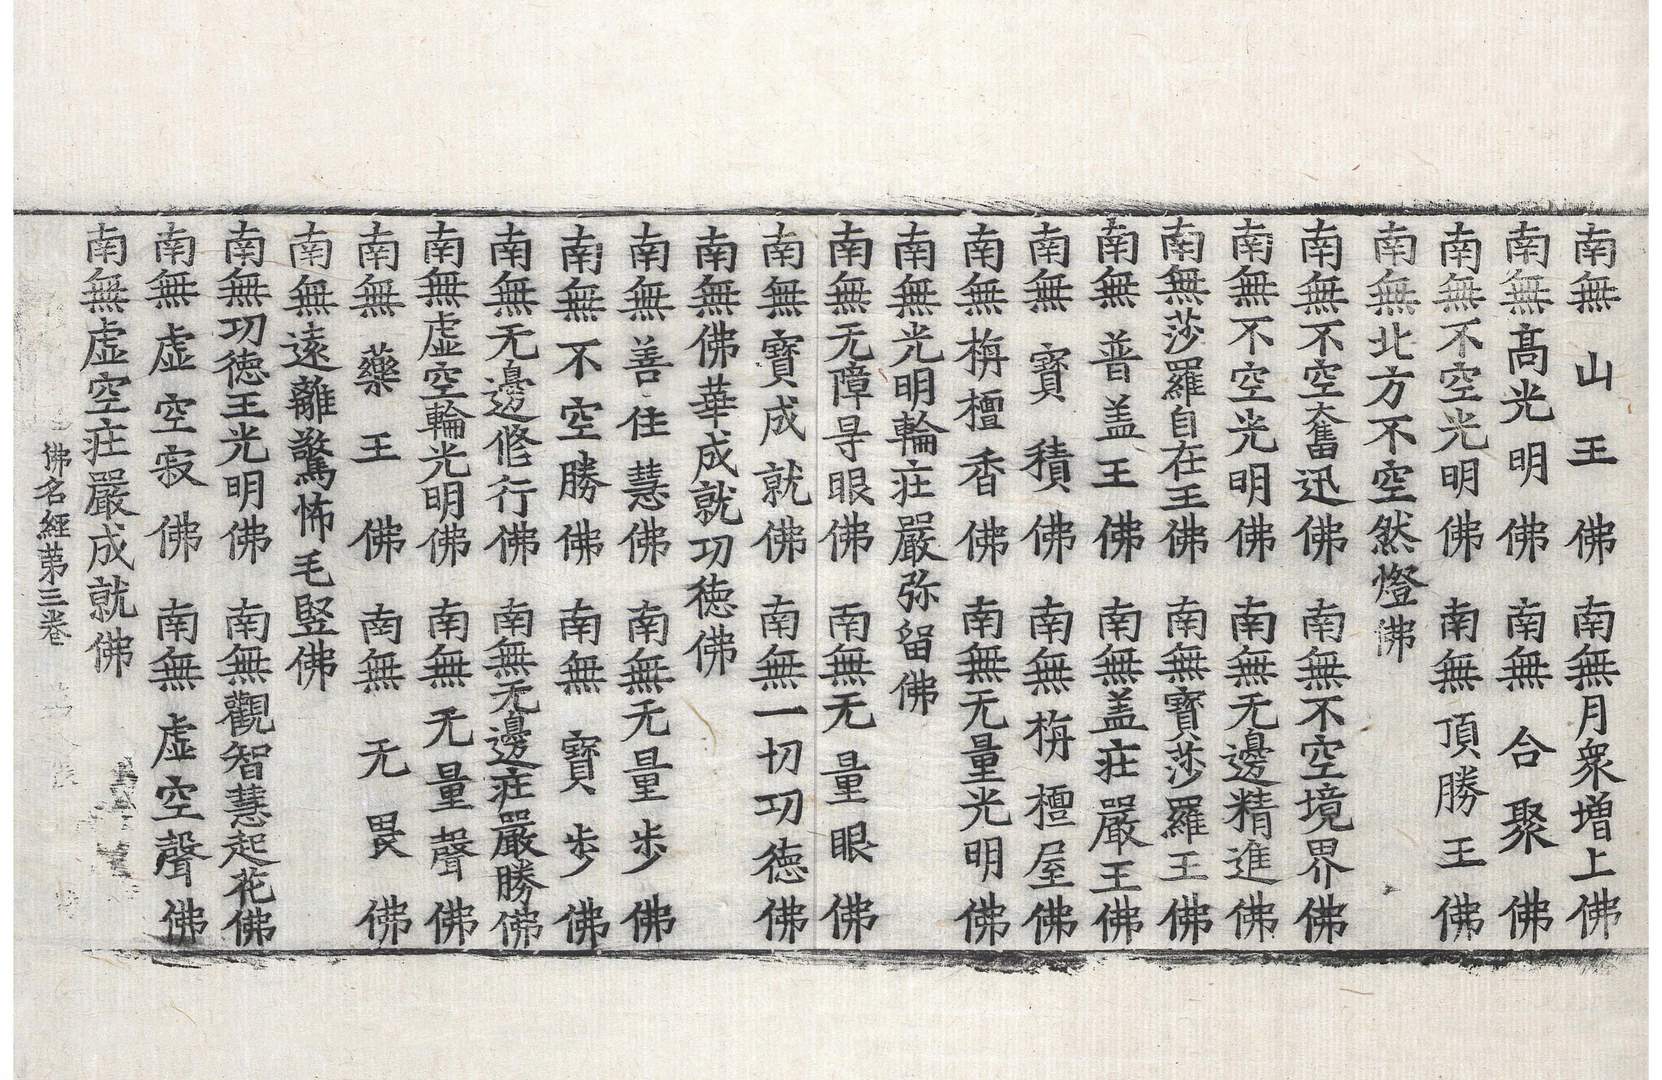 南無山王佛　南無月衆增上佛
南無髙光明佛　南無合聚佛
南無不空光明佛　南無頂勝王佛
南無北方不空然燈佛
南無不空奮迅佛　南無不空境界佛
南無不空光明佛　南無无邊精進佛
南無莎羅自在王佛　南無寶莎羅王佛
南無普盖王佛　南無盖莊嚴王佛
南無寶積佛　南無栴檀屋佛
南無栴檀香佛　南無无量光明佛
南無光明輪莊嚴弥留佛
南無无障㝵眼佛　南無无量眼佛
南無寶成就佛　南無一切功德佛
南無佛華成就功德佛
南無善住慧佛　南無无量步佛
南無不空勝佛　南無寶步佛
南無无邊修行佛　南無无邊莊嚴勝佛
南無虛空輪光明佛　南無无量聲佛
南無藥王佛　南無无畏佛
南無遠離驚怖毛竪佛
南無功德王光明佛　南無觀智慧起花佛
南無虛空寂佛　南無虛空聲佛
南無虛空莊嚴成就佛
佛名經苐三卷